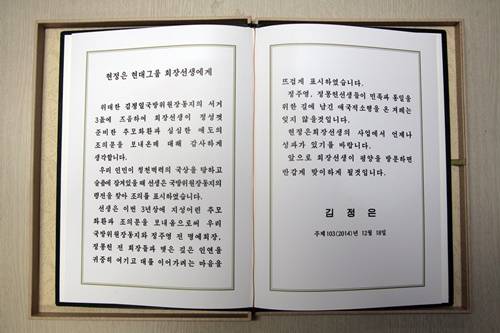 현정은 현대그룹 회장선생에게
위대한 김정일국방위원장동지의 서거
3돐에 즈음하여 회장선생이 정성껏
준비한 추모화환과 심심한 애도의
조의문을 보내온데 대해 감사하게
생각합니다.
우리 인민이 청천벽력의 국상을 당하고
슬픔에 잠겨있을 때 선생은 국방위원장동지의
령전을 찾아 조의를 표시하였습니다.
선생은 이번 3년상에 지성어린 추모
화환과 조의문을 보내옴으로써 우리
국방위원장동지와 정주영 전 명예회장,
정몽헌 전 회장들과 맺은 깊은 인연을
귀중히 여기고 대를 이어가려는 마음을
뜨겁게 표시하였습니다.
정주영, 정몽헌선생들이 민족과 통일을
위한 길에 남긴 애국적소행을 온 겨레는
잊지 않을것입니다.
현정은회장선생의 사업에서 언제나
성과가 있기를 바랍니다.
앞으로 회장선생이 평양을 방문하면
반갑게 맞이하게 될것입니다.
김 정 은
주체103(2014)년 12월 18일